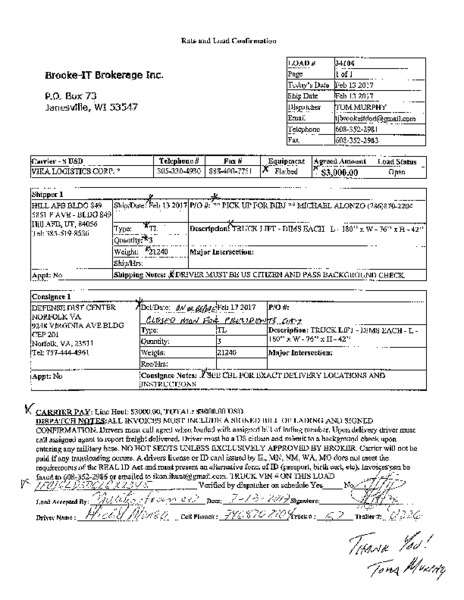 Rate and Load Confirmation
Brooke-IT Brokerage Inc.
P.O. Box 73
Janesville, WI 53547
LOAD # 34104
Page 1 of 1
Today's Date Feb 13 2017
Ship Date Feb 13 2017
Dispatcher TOM MURPHY
Email
Telephone 608-352-2981
Fax 608-352-2983
Carrier - $ USD Telephone # Fax # Equipment Agreed Amount Load Status
VIKA LOGISTICS CORP. * 305-330-4930 888-400-7751 X Flatbed X $3,000.00 Open
Shipper 1
HILL AFB BLDG 849 Ship/Date: Feb 13 2017 P/O #: ** PICK UP FOR ** MICHAEL ALONZO (786)870-2204
5851 F AVE - BLDG 849
Hill AFB, UT, 84056 Type: TL Description: TRUCK LIFT - DIMS EACH L - 180" x W - 76" x H - 42"
Tel: 385-519-8536
Quantity: 3
Weight: 21240 Major Intersection:
Ship/Hrs:
Appt: No Shipping Notes: X DRIVER MUST BE US CITIZEN AND PASS BACKGROUND CHECK.
Consignee 1
DEFENSE DIST CENTER Del/Date: ON OR BEFORE Feb 17 2017 P/O #:
NORFOLK VA CLOSED MON FOR PRESIDENTS DAY
9248 VIRGINIA AVE BLDG Type: TL Description: TRUCK LIFT - DIMS EACH - L -
CEP 201 180" x W - 76" x H - 42"
Norfolk, VA, 23511 Quantity: 3
Tel: 757-444-4961 Weight: 21240 Major Intersection:
Rec/Hrs:
Appt: No Consignee Notes: X SEE CHL FOR EXACT DELIVERY LOCATIONS AND
INSTRUCTIONS
X CARRIER PAY: Line Haul: $3000.00, TOTAL: $3000.00 USD
DISPATCH NOTES: ALL INVOICES MUST INCLUDE A SIGNED BILL OF LADING AND SIGNED
CONFIRMATION. Drivers must call agent when loaded with assigned bill of lading number. Upon delivery driver must
call assigned agent to report freight delivered. Driver must be a US citizen and submit to a background check upon
entering any military base. NO HOT SEATS UNLESS EXCLUSIVELY APPROVED BY BROKER. Carrier will not be
paid if any transloading occurs. A drivers license or ID card issued by IL, MN, NM, WA, MO does not meet the
requirements of the REAL ID Act and must present an alternative form of ID (passport, birth cert, etc). Invoices can be
faxed to 608-352-2986 or emailed to TRUCK VIN # ON THIS LOAD
Verified by dispatcher on schedule Yes No
Load Accepted By: Date: 2-13-2017 Signature:
Driver Name: Cell Phone #: 7868702204 Truck #: 57 Trailer #:
Thank You!
Tom Murphy